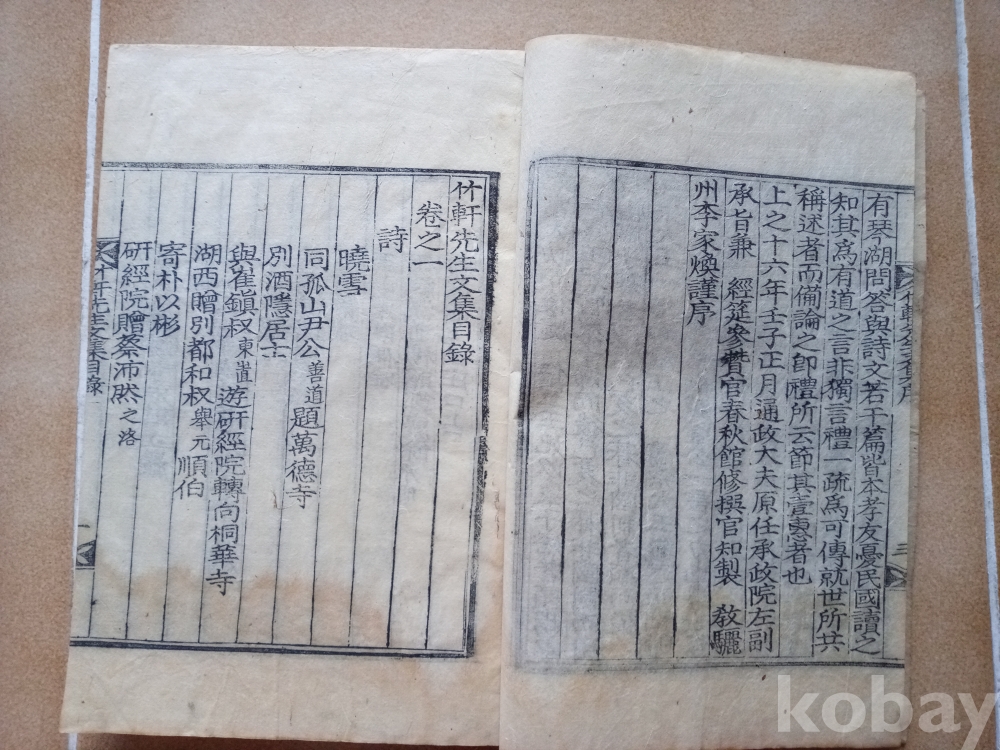 有琴湖問答與詩文若干篇皆本孝友憂民國讀之
知其爲有道之言非獨言禮一疏爲可傳就世所共
稱述者而備論之卽禮所云節其壹惠者也
上之十六年壬子正月通政大夫原任承政院左副
承旨兼 經筵參贊官春秋館修撰官知製 敎驪
州李家煥謹序
竹軒先生文集目錄
卷之一
詩
曉雪
同孤山尹公善道題萬德寺
別酒隱居士
與崔鎭叔東㘴遊硏經院轉向桐華寺
湖西贈別都和叔舉元順伯
寄朴以彬
硏經院贈蔡沛然之洛
竹軒先生文集目錄 一
kobay